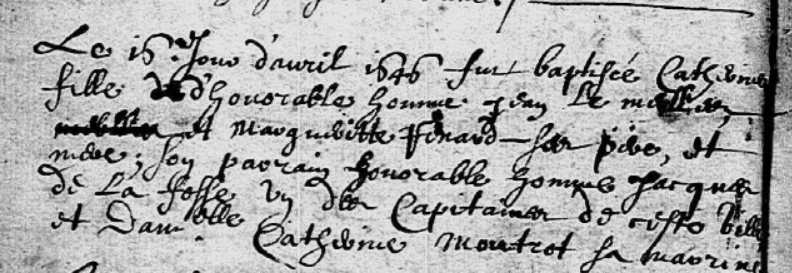 Le 16.e Jour d'auril 1646 fut baptisée Catherine
fille d'honorable homme jean Le
et Margueritte Fenard ses père, et
mere; son parrain honorable homme Jacques
de La fosse vn des Capitaines de ceste ville
et Dam.elle Catherine Moutrot sa marrine